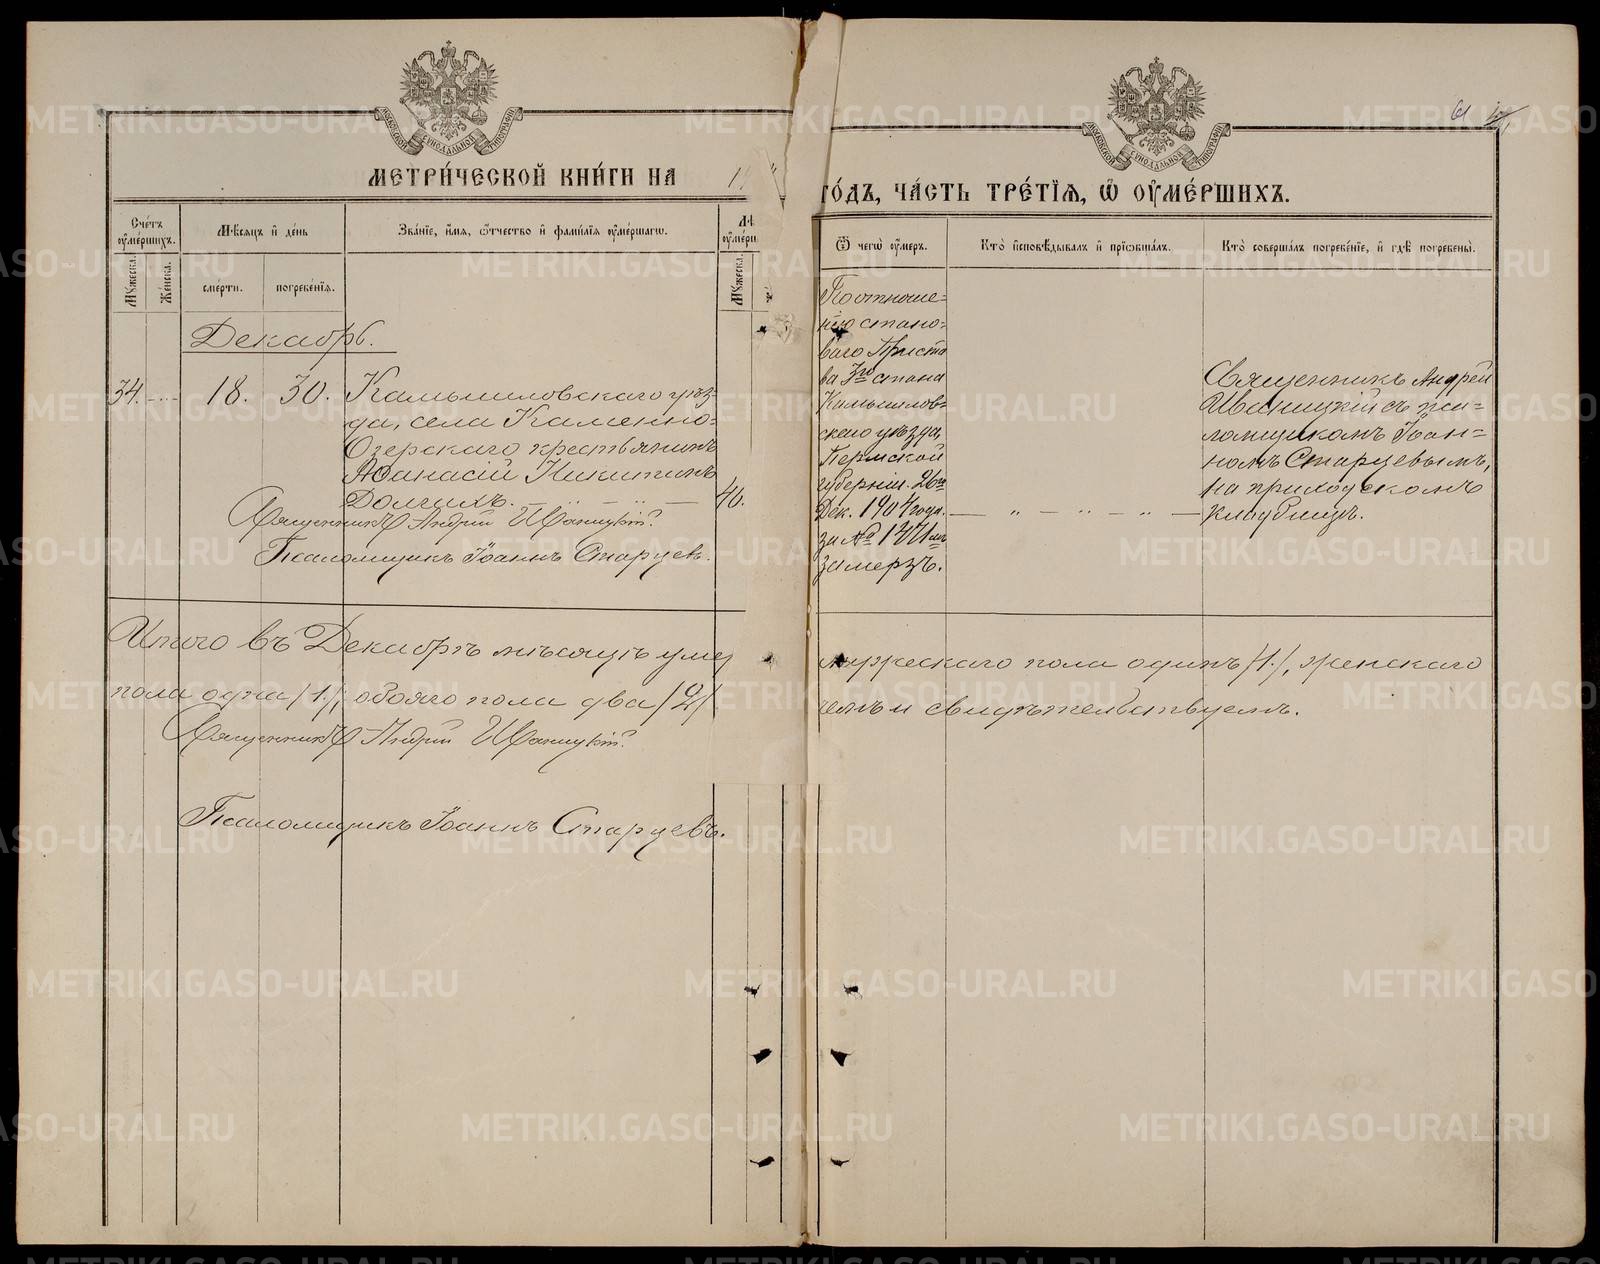 МЕТРИ́ЧЕСКОЙ КНИ́ГИ НА 19
ГО́ДЪ, ЧА́СТЬ ТРЕ́ТЇѦ, Ѽ ОУ҆МЕ́РШИХЪ.
МОСКОВСКОЙ СѴНОДАЛЬНОЙ ТИПОГРАФІИ
МОСКОВСКОЙ СѴНОДАЛЬНОЙ ТИПОГРАФІИ
61
Сче́тъ оу҆ме́ршихъ.
Мꙋжеска.
Же́нска.
Мѣ́сѧцъ и҆ де́нь
сме́рти.
погребе́нїѧ.
Зва́нїе, и҆́мѧ, ѻ҆́тчество и҆ фами́лїѧ оу҆ме́ршагѡ.
Лѣ
оу҆ме́рш
Мꙋжеска.
Ѿ чегѡ̀ оу҆́меръ.
Кто̀ и҆сповѣ́дывалъ и҆ прїѡбща́лъ.
Кто̀ соверша́лъ погребе́нїе, и҆ гдѣ̀ погребены̀.
Декабрь.
34. - - - 18. 30.
Камышловскаго уѣз-
да, села Каменно-
Озерскаго крестьянинъ
Аѳанасій Никитинъ
Долгихъ. — „ — „ — 46.
Священникъ Андрей Иваницкій.
Псаломщикъ Іоаннъ Старцевъ.
По отноше-
нію стано-
ваго Приста
ва 3го стана
Камышлов-
скаго уѣзда,
Пермской
губерніи. 26го
Дек. 1904 года.
за №
замерзъ.
— „ — „ — „ —
Священникъ Андрей
Иваницкій съ пса-
ломщикомъ Іоан-
номъ Старцевымъ,
на приходскомъ
кладбищѣ.
Итого въ Декабрѣ мѣсяцѣ умер
мужескаго пола одинъ /1./, женскаго
пола одна /1./, обоего пола два /2/
чемъ и свидѣтельствуемъ.
Священникъ Андрей Иваницкій.
Псаломщикъ Іоаннъ Старцевъ.
METRIKI.GASO-URAL.RU